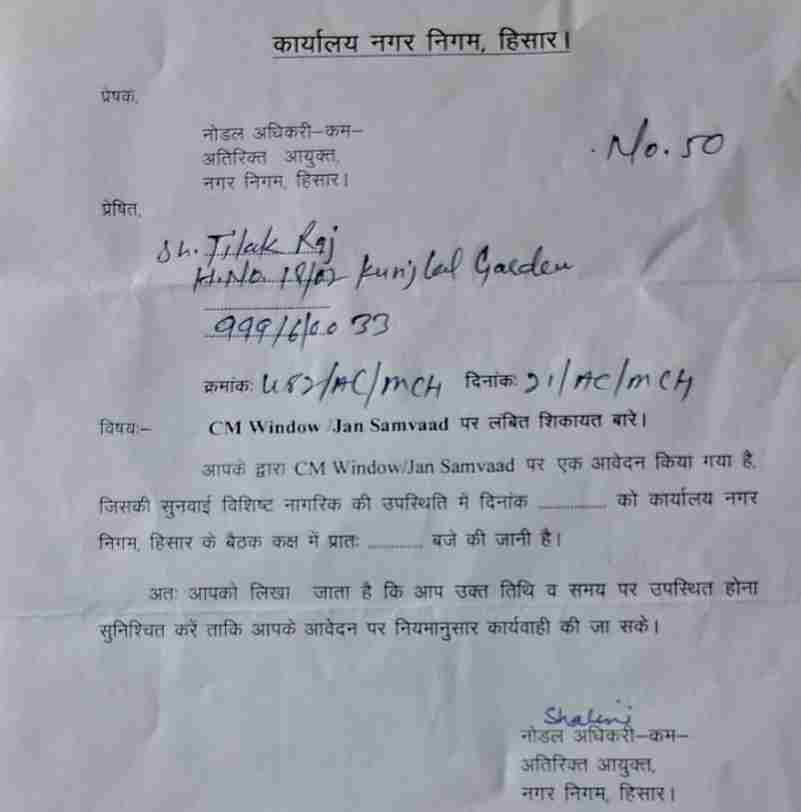 कार्यालय नगर निगम, हिसार।
प्रेषक,
नोडल अधिकरी–कम–
अतिरिक्त आयुक्त,
नगर निगम, हिसार।
No. 50
प्रेषित,
Sh. Tilak Raj
H.No. 18/02 Kunj Lal Garden
क्रमांक: /AC/MCH दिनांक: 21/AC/MCH
विषयः– CM Window /Jan Samvaad पर लंबित शिकायत बारे।
आपके द्वारा CM Window/Jan Samvaad पर एक आवेदन किया गया है,
जिसकी सुनवाई विशिष्ट नागरिक की उपस्थिति में दिनांक ............ को कार्यालय नगर
निगम, हिसार के बैठक कक्ष में प्रातः .......... बजे की जानी है।
अतः आपको लिखा जाता है कि आप उक्त तिथि व समय पर उपस्थित होना
सुनिश्चित करें ताकि आपके आवेदन पर नियमानुसार कार्यवाही की जा सके।
Shalini
नोडल अधिकरी–कम–
अतिरिक्त आयुक्त,
नगर निगम, हिसार।